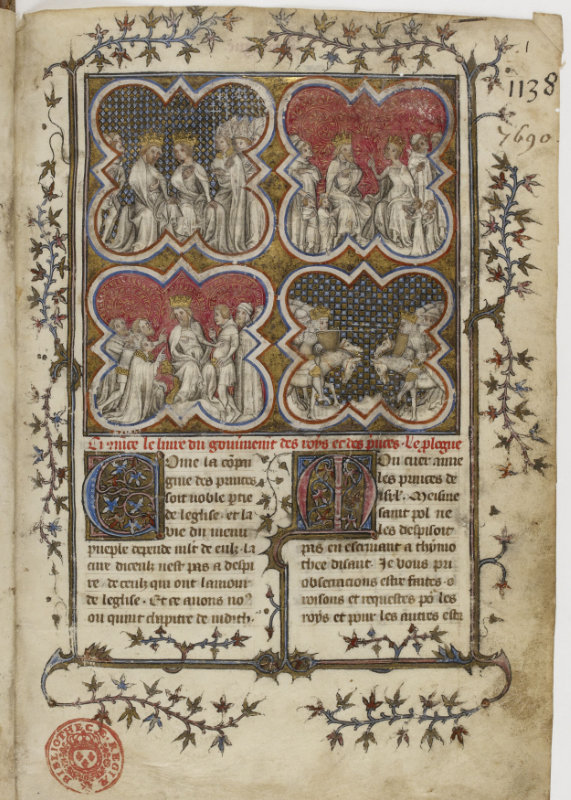 1
1138
7690
Ci cõmence le liure du gouuernemẽt des roys et des princes. Le plogue
Come la cõpai
gnie des princes
soit noble ptie
de leglise. et la
vie du menu
pueple depende
la
cure diceulx nest pas a despi
re. de ceulx qui ont lamour
de leglise. Et ce auons no9
ou quint chapitre de iudith.
Mon cuer aime
les princes de
isrl. Meisme
saint pol ne
les despisoit
pas en escriuant a thimo
thee disant. Je vous pri
obsecracions estre faites. o
roisons et requestes po les
roys et pour les autres
BIBLIOTHECÆ REGIÆ